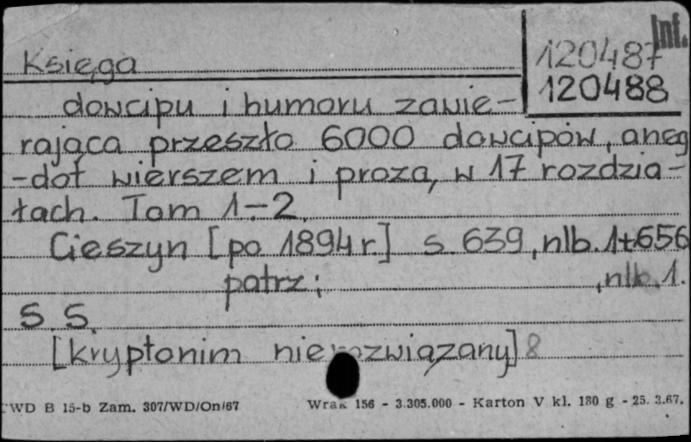 Inf.
Księga 120487
120488
dowcipu i humoru zawie-
rająca przeszło 6000 dowcipów, aneg
-dot wierszem i prozą, w 17 rozdzia-
łach. Tom 1-2.
Cieszyn [po 1894 r.] s. 639, nlb. 1+656
patrz: , nlb. 1.
S. S.
[kryptonim nierozwiązany] 8
WD B 15-b Zam. 307/WD/On/67 Wrak 156 - 3.305.000 - Karton V kl. 180 g - 25. 3.67.